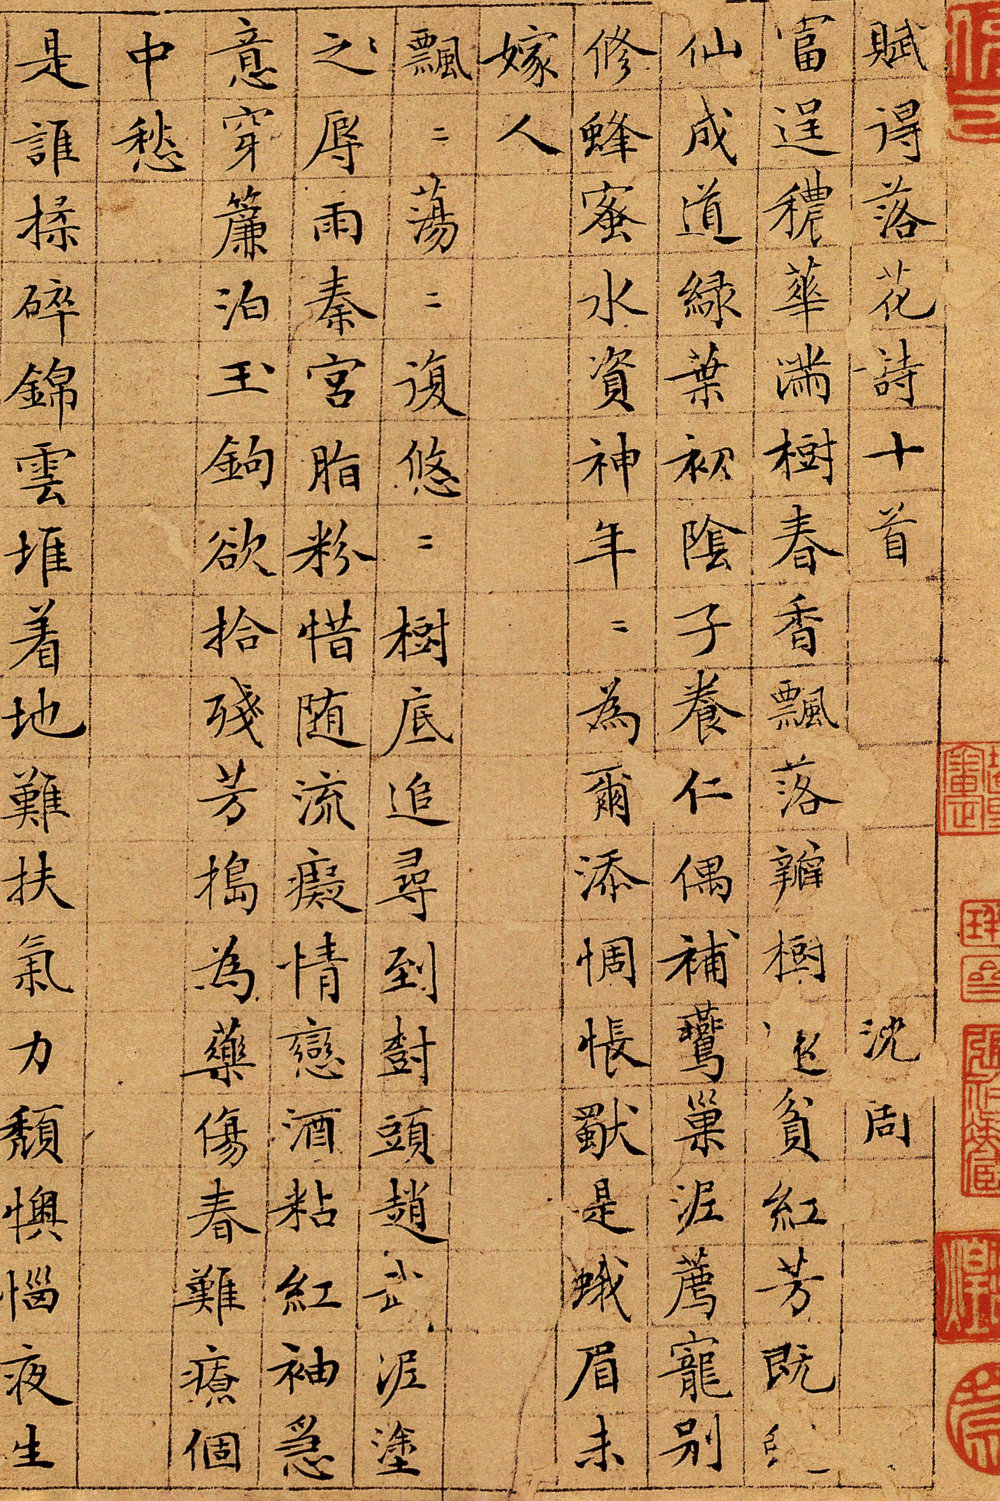 賦得落花詩十首 沈周
富逞穠華滿樹春香飄落瓣樹貧紅芳既
仙成道綠葉初陰子養仁偶補鷰巢泥薦寵別
修蜂蜜水資神年〻為爾添惆悵獨是蛾眉未
嫁人
飄〻蕩〻復悠〻樹底追尋到樹頭趙武泥塗
之辱雨秦宮脂粉惜随流癡情戀酒粘紅袖急
意穿簾泊玉鉤欲拾殘芳搗為藥傷春難療個
中愁
是誰揉碎錦雲堆着地難扶氣力頹懊惱夜生